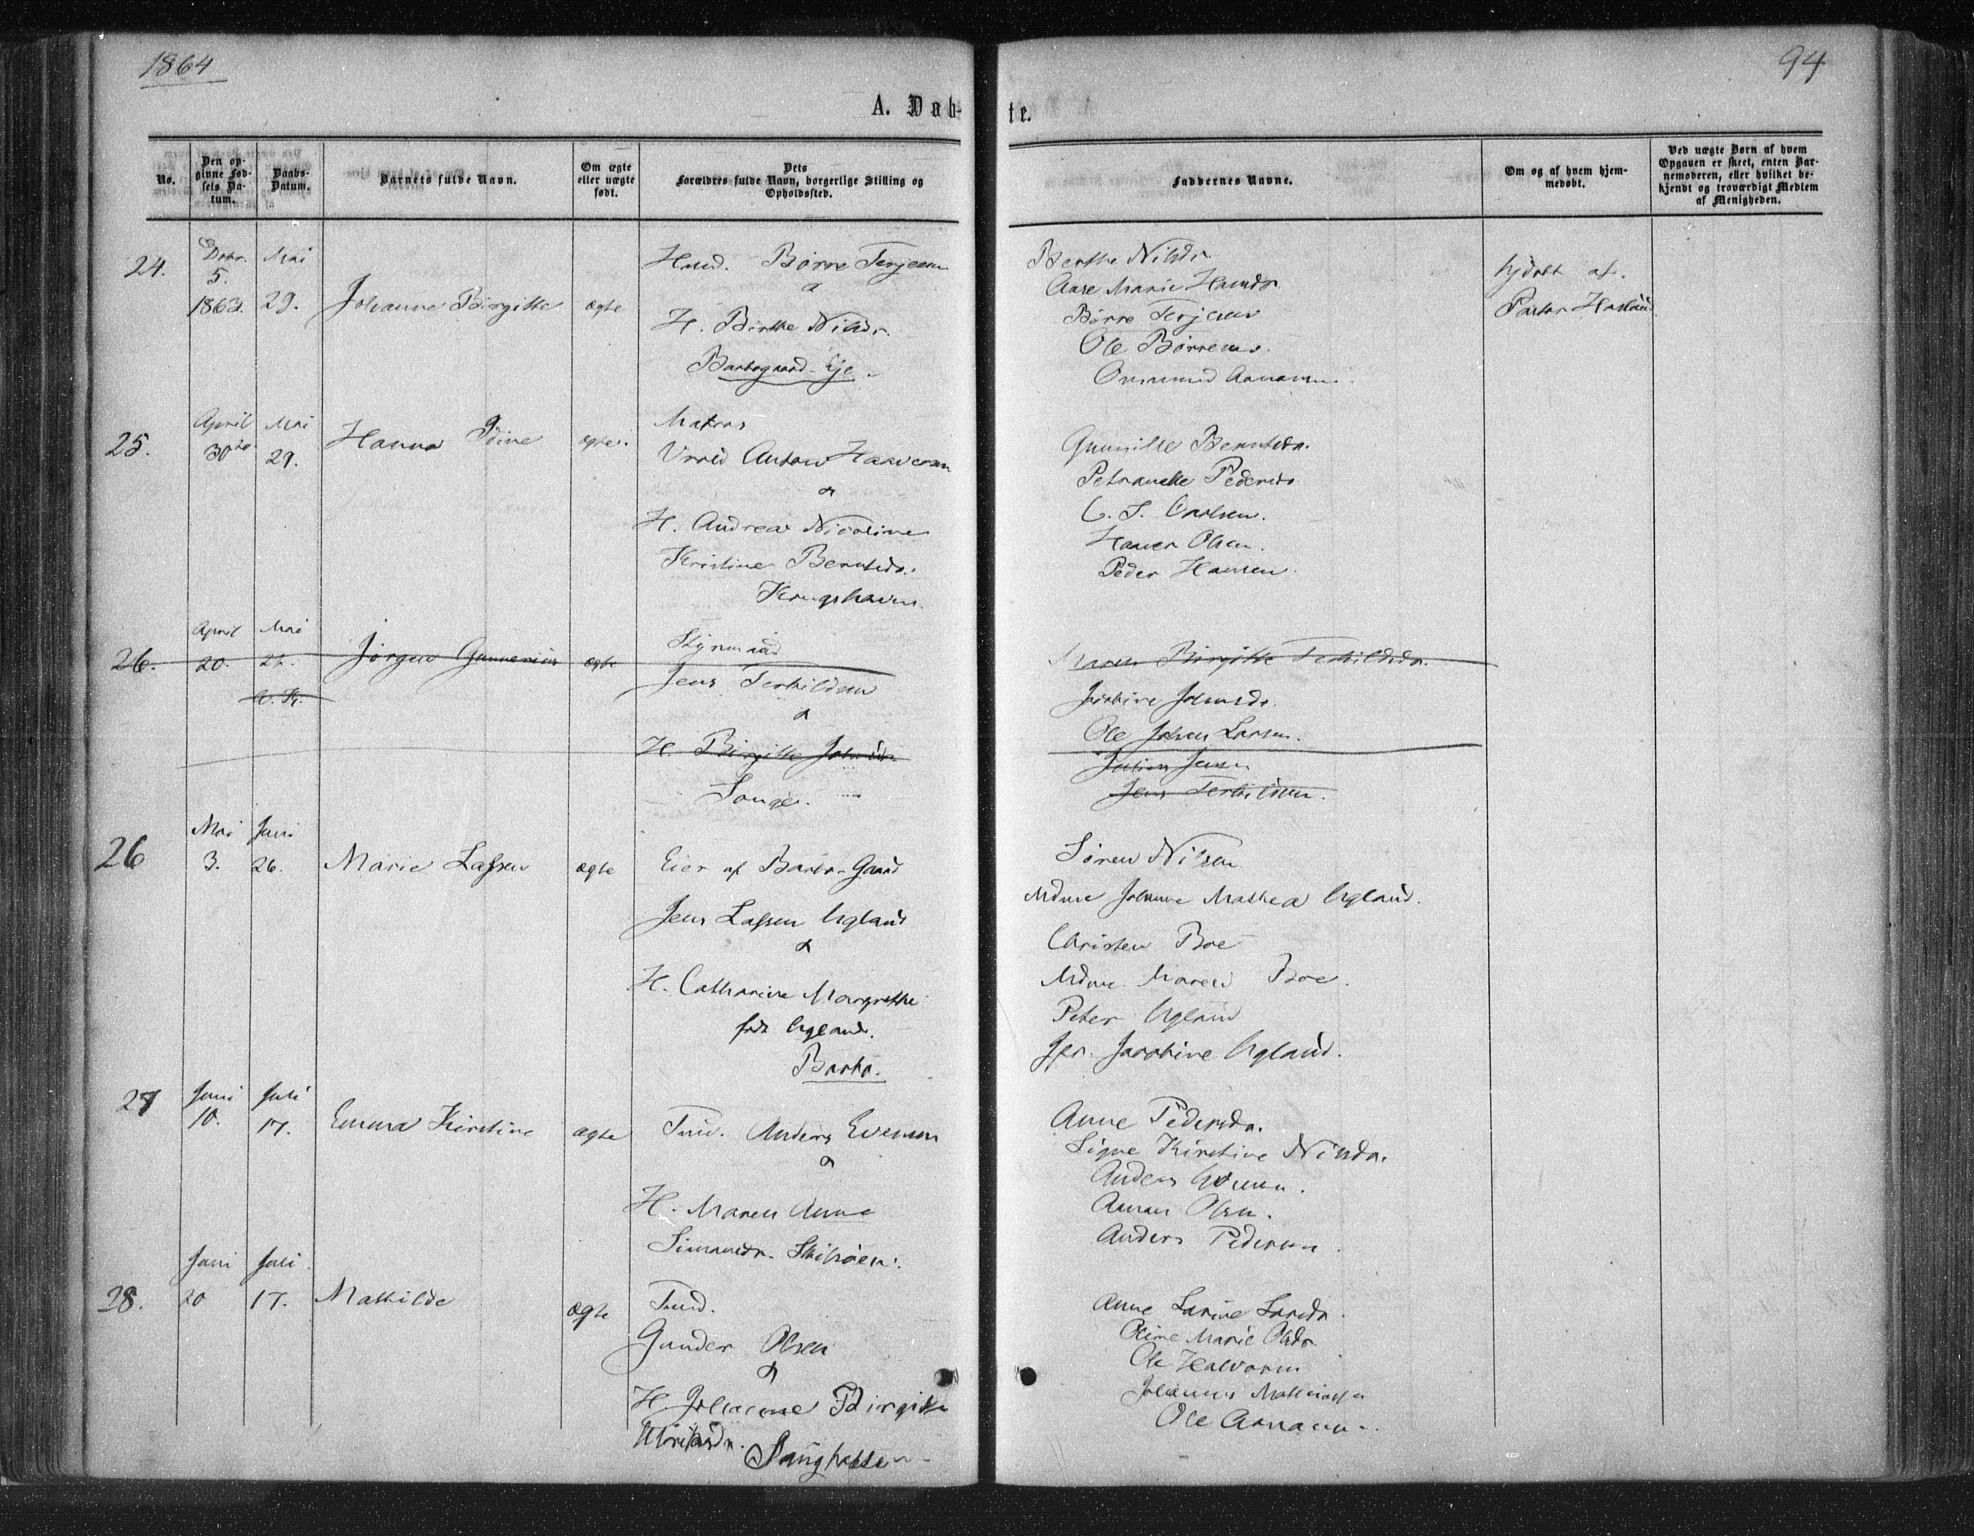 1864
94
A. Døb-
te.
No.
Den op-
givne Fød-
sels Da-
tum.
Daabs-
Datum.
Barnets fulde Navn.
Om ægte
eller uægte
født.
Dets
Forældres fulde Navn, borgerlige Stilling og
Opholdssted.
Faddernes Navne.
Om og af hvem hjem-
medøbt.
Ved uægte Børn af hvem
Opgaven er skeet, enten Bar-
nemoderen, eller hvilket be-
kjendt og troværdigt Medlem
af Menigheden.
24.
5.
1863.
Mai
29.
Johanne Birgitte
ægte
Børre Terjesen
&
H. Birthe Nilsdr.
Barbogaard Eje.
Berthe Nilsdr
Aase Marie Hansdr
Børre Terjesen
Ole Børresen.
hjdøbt af
Pastor
25.
April
30te
Mai
29.
Hanna
ægte.
Matros
Anton
&
H. Andrea Nicoline
Kristine Berntsdr.
Gunnille Berntsdr.
Petronelle Pedersdr
C. S. Carlsen.
Olsen.
Peder Hansen.
26.
April
20.
Mai
Jørgen Gunnerius
ægte
Styrmand
Jens Terkildsen
&
H. Birgitte
Songe.
Maren Birgitte Terkildsdr.
Ole Johan Larsen.
Jensen
Jens Terkildsen.
26
Mai
3.
Juni
26.
Marie Lassen
ægte
Eier af Barbo-Gaard
Jens Lassen Ugland
&
H. Catharine Margrethe
født Ugland.
Barbo.
Søren Nilsen
Mdme Johanne Mathea Ugland.
Christen Boe
Mdme. Maren Boe.
Peter Ugland
Jfr. Jacobine Ugland.
27
Juni
10.
Juli
17.
Emma Kirstine
ægte
Tmd. Anders Evensen
&
H. Maren Anne
Anne Pedersdr.
Signe Kirstine Nilsdr.
Anders Evensen.
Aanon Olsen.
Anders Pedersen.
28.
Juni
20
Juli
17.
Mathilde
ægte
Tmd.
Gunder Olsen
&
H. Johanne Birgitte
Anne Larine Larsdr.
Oline Marie Olsdr.
Ole Halvorsen
Ole Aanonsen.